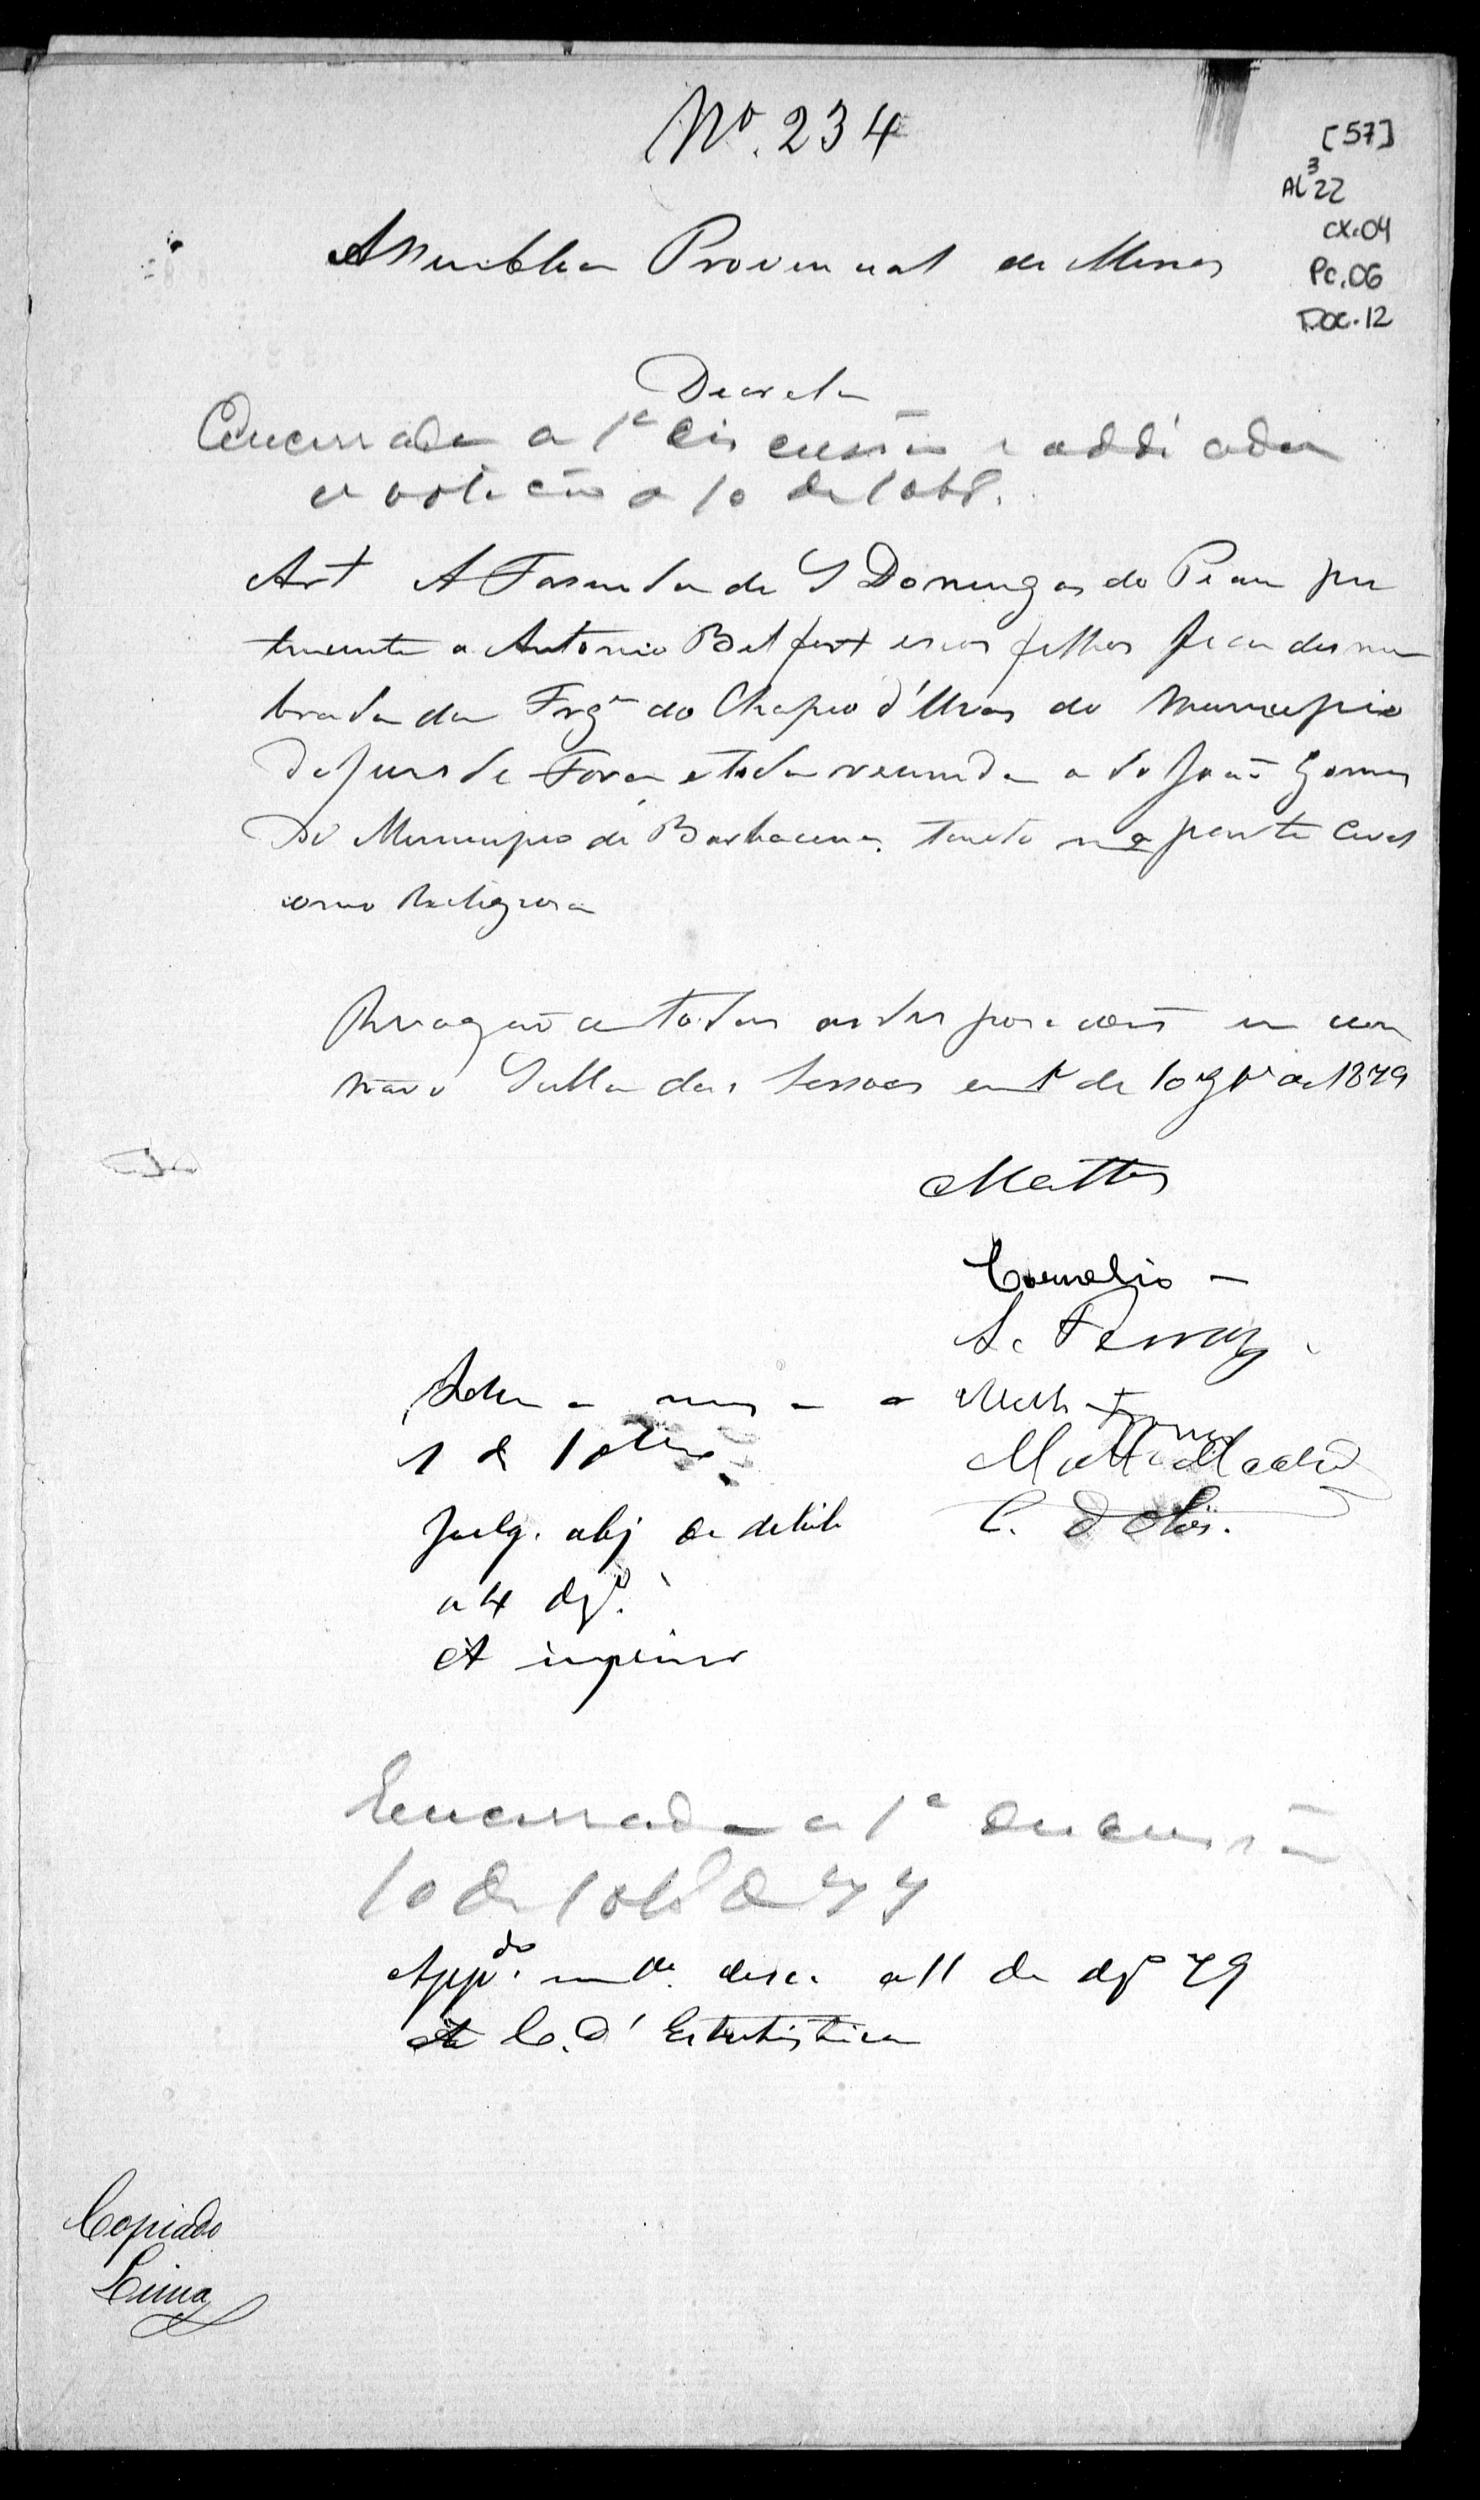 Nº. 234
[57]
AL³22
CX.04
Pc.06
Doc.12
Assemblea Provincial de Minas
Decreta
Encerrada a 1ª discussão e addiada
a votação a 10 de 10br.
Art A Fasenda de S Domingos do Piau per
tencente a Antonio Belfort e seos filhos fica desmem
brada da Frgª do Chapeo d'Uvas do Municipio
de Juis de Fora e toda reunida a do João Gomes
do Municipio de Barbacena, tanto na parte Civel
como Religiosa
Revogão se todas as disposicoens em con
trario Salla das Sessoes em 1º de 10brº de 1879
Mattos
Cornelio
S. Ferraz
1 de 10bro
Julg. obj de delib
a 4 dzº.
A imprimir
Encerrada a 1ª discussão
10 de 10br de 79
Appdª. em 1ª. disc. a 11 de dzº 79
A C. d'Estatistica
Copiado
Lima